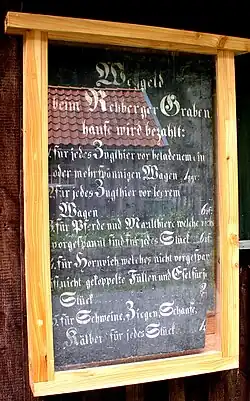 Weggeld
beim Rehberger Graben
hause wird bezahlt:
1. für jedes Zugthier vor beladenem ein
oder mehrspännigen Wagen 4gr.
2. für jedes Zugthier vor leerem
Wagen
3. für Pferde und Maulthiere welche nicht
vorgespannt sind für jedes Stück
4. für Hornvieh welches nicht vorgespan
nicht gekoppelte Füllen und Esel für je
Stück 2
5. für Schweine, Ziegen, Schaafe,
Kälber für jedes Stück